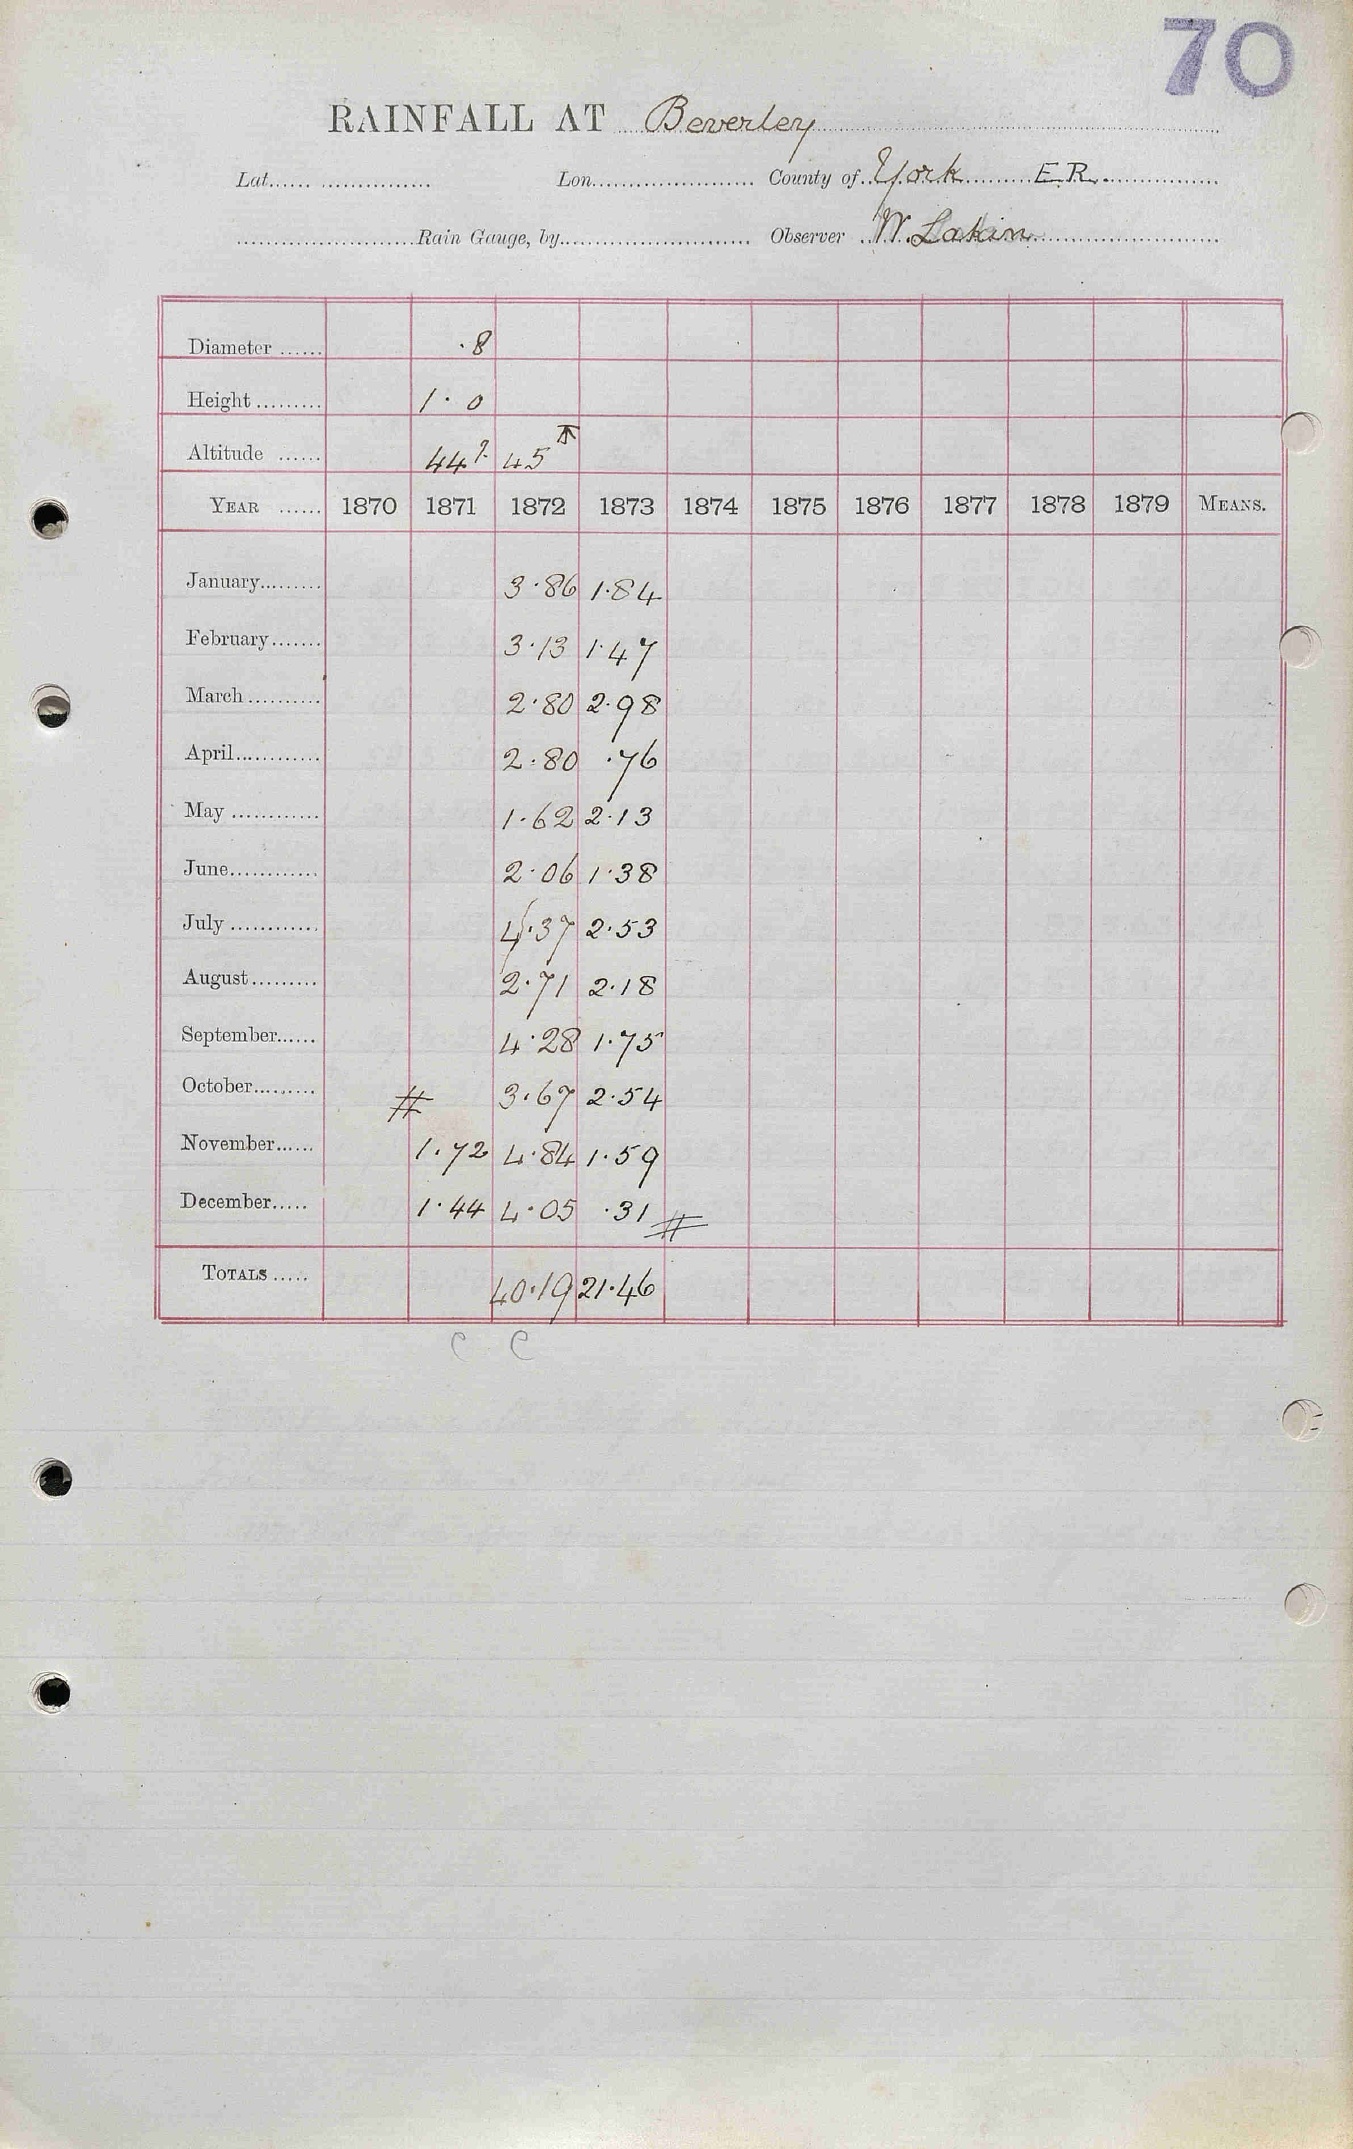 70
RAINFALL AT Beverley
Lat. Lon. County of York E.R.
Rain Gauge, by Observer W. Lakin
Diameter ·8
Height 1·0
Altitude 44? 45
YEAR 1870 1871 1872 1873 1874 1875 1876 1877 1878 1879 MEANS.
January 3·86 1·84
February 3·13 1·47
March 2·80 2·98
April 2·80 ·76
May 1·62 2·13
June 2·06 1·38
July 4·37 2·53
August 2·71 2·18
September 4·28 1·75
October # 3·67 2·54
November 1·72 4·84 1·59
December 1·44 4·05 ·31 #
TOTALS 40·19 21·46
C C